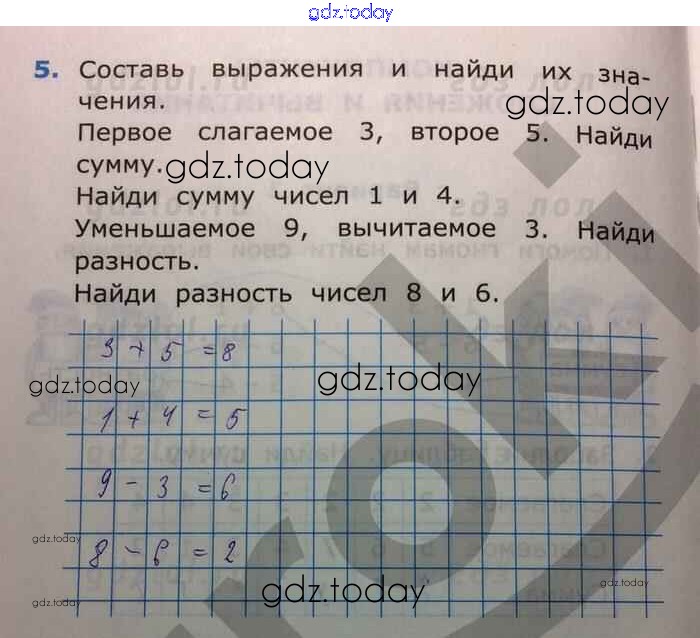 gdz.today
5. Составь выражения и найди их зна-
чения.
gdz.today
Первое слагаемое 3, второе 5. Найди
сумму. gdz.today
Найди сумму чисел 1 и 4.
Уменьшаемое 9, вычитаемое 3. Найди
разность.
Найди разность чисел 8 и 6.
3 + 5 = 8
gdz.today gdz.today
1 + 4 = 5
9 - 3 = 6
gdz.today
8 - 6 = 2
gdz.today gdz.today gdz.today